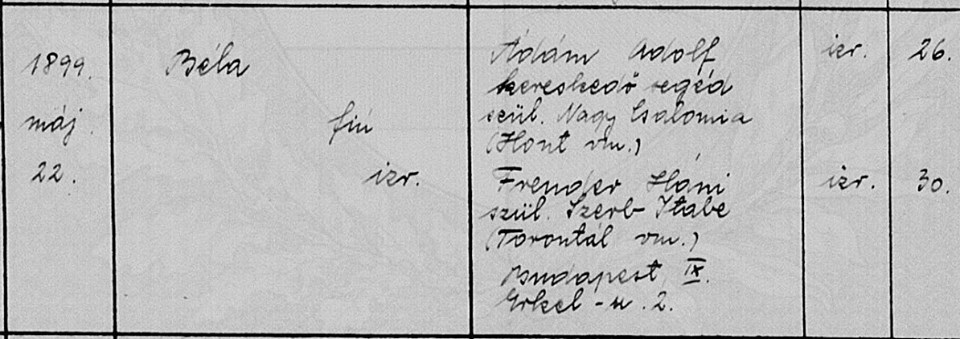 1899.
máj.
22.
Béla
fiú
izr.
Ádám Adolf
kereskedő segéd
szül. Nagy Csalomia
(Hont vm.)
Frender Háni
szül. Szerb Itabe
(Torontál vm.)
Budapest IX.
Erkel-u. 2.
izr.
izr.
26.
30.